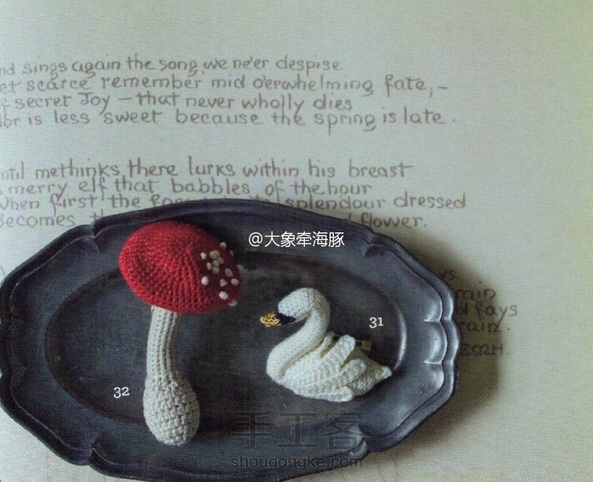 nd sings again the song we ne'er despise
et scarce remember mid o'erwhelming fate,-
secret Joy - that never wholly dies
or is less sweet because the spring is late.
ntil methinks there lurks within his breast
merry elf that babbles of the hour
When first the splendour dressed
Becomes flower.
@大象牵海豚
ys
rain
d fays
rain.
ESMH.
31
32
手工客
shougongke.com